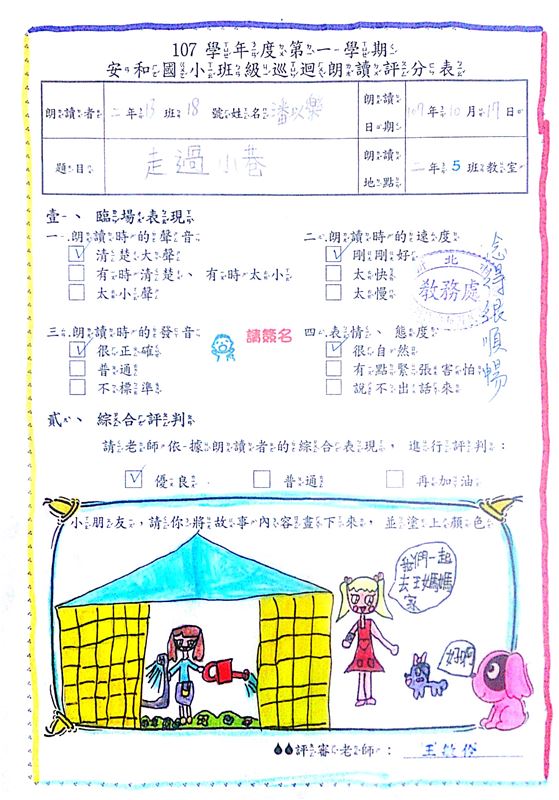 107學年度第一學期
安和國小班級巡迴朗讀評分表
朗讀者 二年13班18號姓名潘以樂 朗讀日期 107年10月17日
題目 走過小巷 朗讀地點 二年5班教室
壹、臨場表現
一.朗讀時的聲音 二.朗讀時的速度
清楚大聲 剛剛好
有時清楚、有時太小 太快
太小聲 太慢
北
教務處
念得很順暢
三.朗讀時的發音 請簽名 四.表情、態度
很正確 很自然
普通 有點緊張害怕
不標準 說不出話來
貳、綜合評判
請老師依據朗讀者的綜合表現，進行評判：
優良 普通 再加油
小朋友，請你將故事內容畫下來，並塗上顏色
我們一起
去王媽媽
家
好啊
評審老師：王